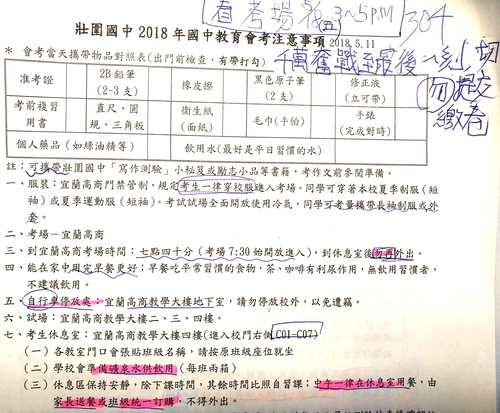 看考場 5/ (五) 3:00~5 P.M 304
壯圍國中 2018 年國中教育會考注意事項 2018.5.11
千萬奮戰至最後一刻 切勿提早繳卷
＊ 會考當天攜帶物品對照表(出門前檢查，有帶打勾)
准考證 2B 鉛筆 (2~3 支) 橡皮擦 黑色原子筆 (2 支) 修正液 (立可帶)
考前複習用書 直尺、圓規、三角板 衛生紙 (面紙) 毛巾(手帕) 手錶 (完成對時)
個人藥品（如綠油精等） 飲用水(最好是平日習慣的水)
註：可攜帶壯圍國中「寫作測驗」小秘笈或勵志小品等書籍，考作文前參閱準備。
一、服裝：宜蘭高商門禁管制，規定考生一律穿校服進入考場。同學可穿著本校夏季制服（短
袖）或夏季運動服（短袖）。考試試場全面開放使用冷氣，同學可考量攜帶長袖制服或外
套。
二、考場－宜蘭高商
三、到宜蘭高商考場時間：七點四十分（考場 7:30 始開放進入），到休息室後勿再外出。
四、能在家中用完早餐更好；早餐吃平常習慣的食物，茶、咖啡有利尿作用，無飲用習慣者，
不建議飲用。
五、自行車停放處：宜蘭高商教學大樓地下室，請勿停放校外，以免遭竊。
六、試場：宜蘭高商教學大樓二、三、四樓。
七、考生休息室：宜蘭高商教學大樓四樓(進入校門右側 C01-C07)
（一）各教室門口會張貼班級名稱，請按原班級座位就坐
（二）學校會準備礦泉水供飲用（每班兩箱）
（三）休息區保持安靜，除下課時間，其餘時間比照自習課；中午一律在休息室用餐，由
家長送餐或班級統一訂購，不得外出。